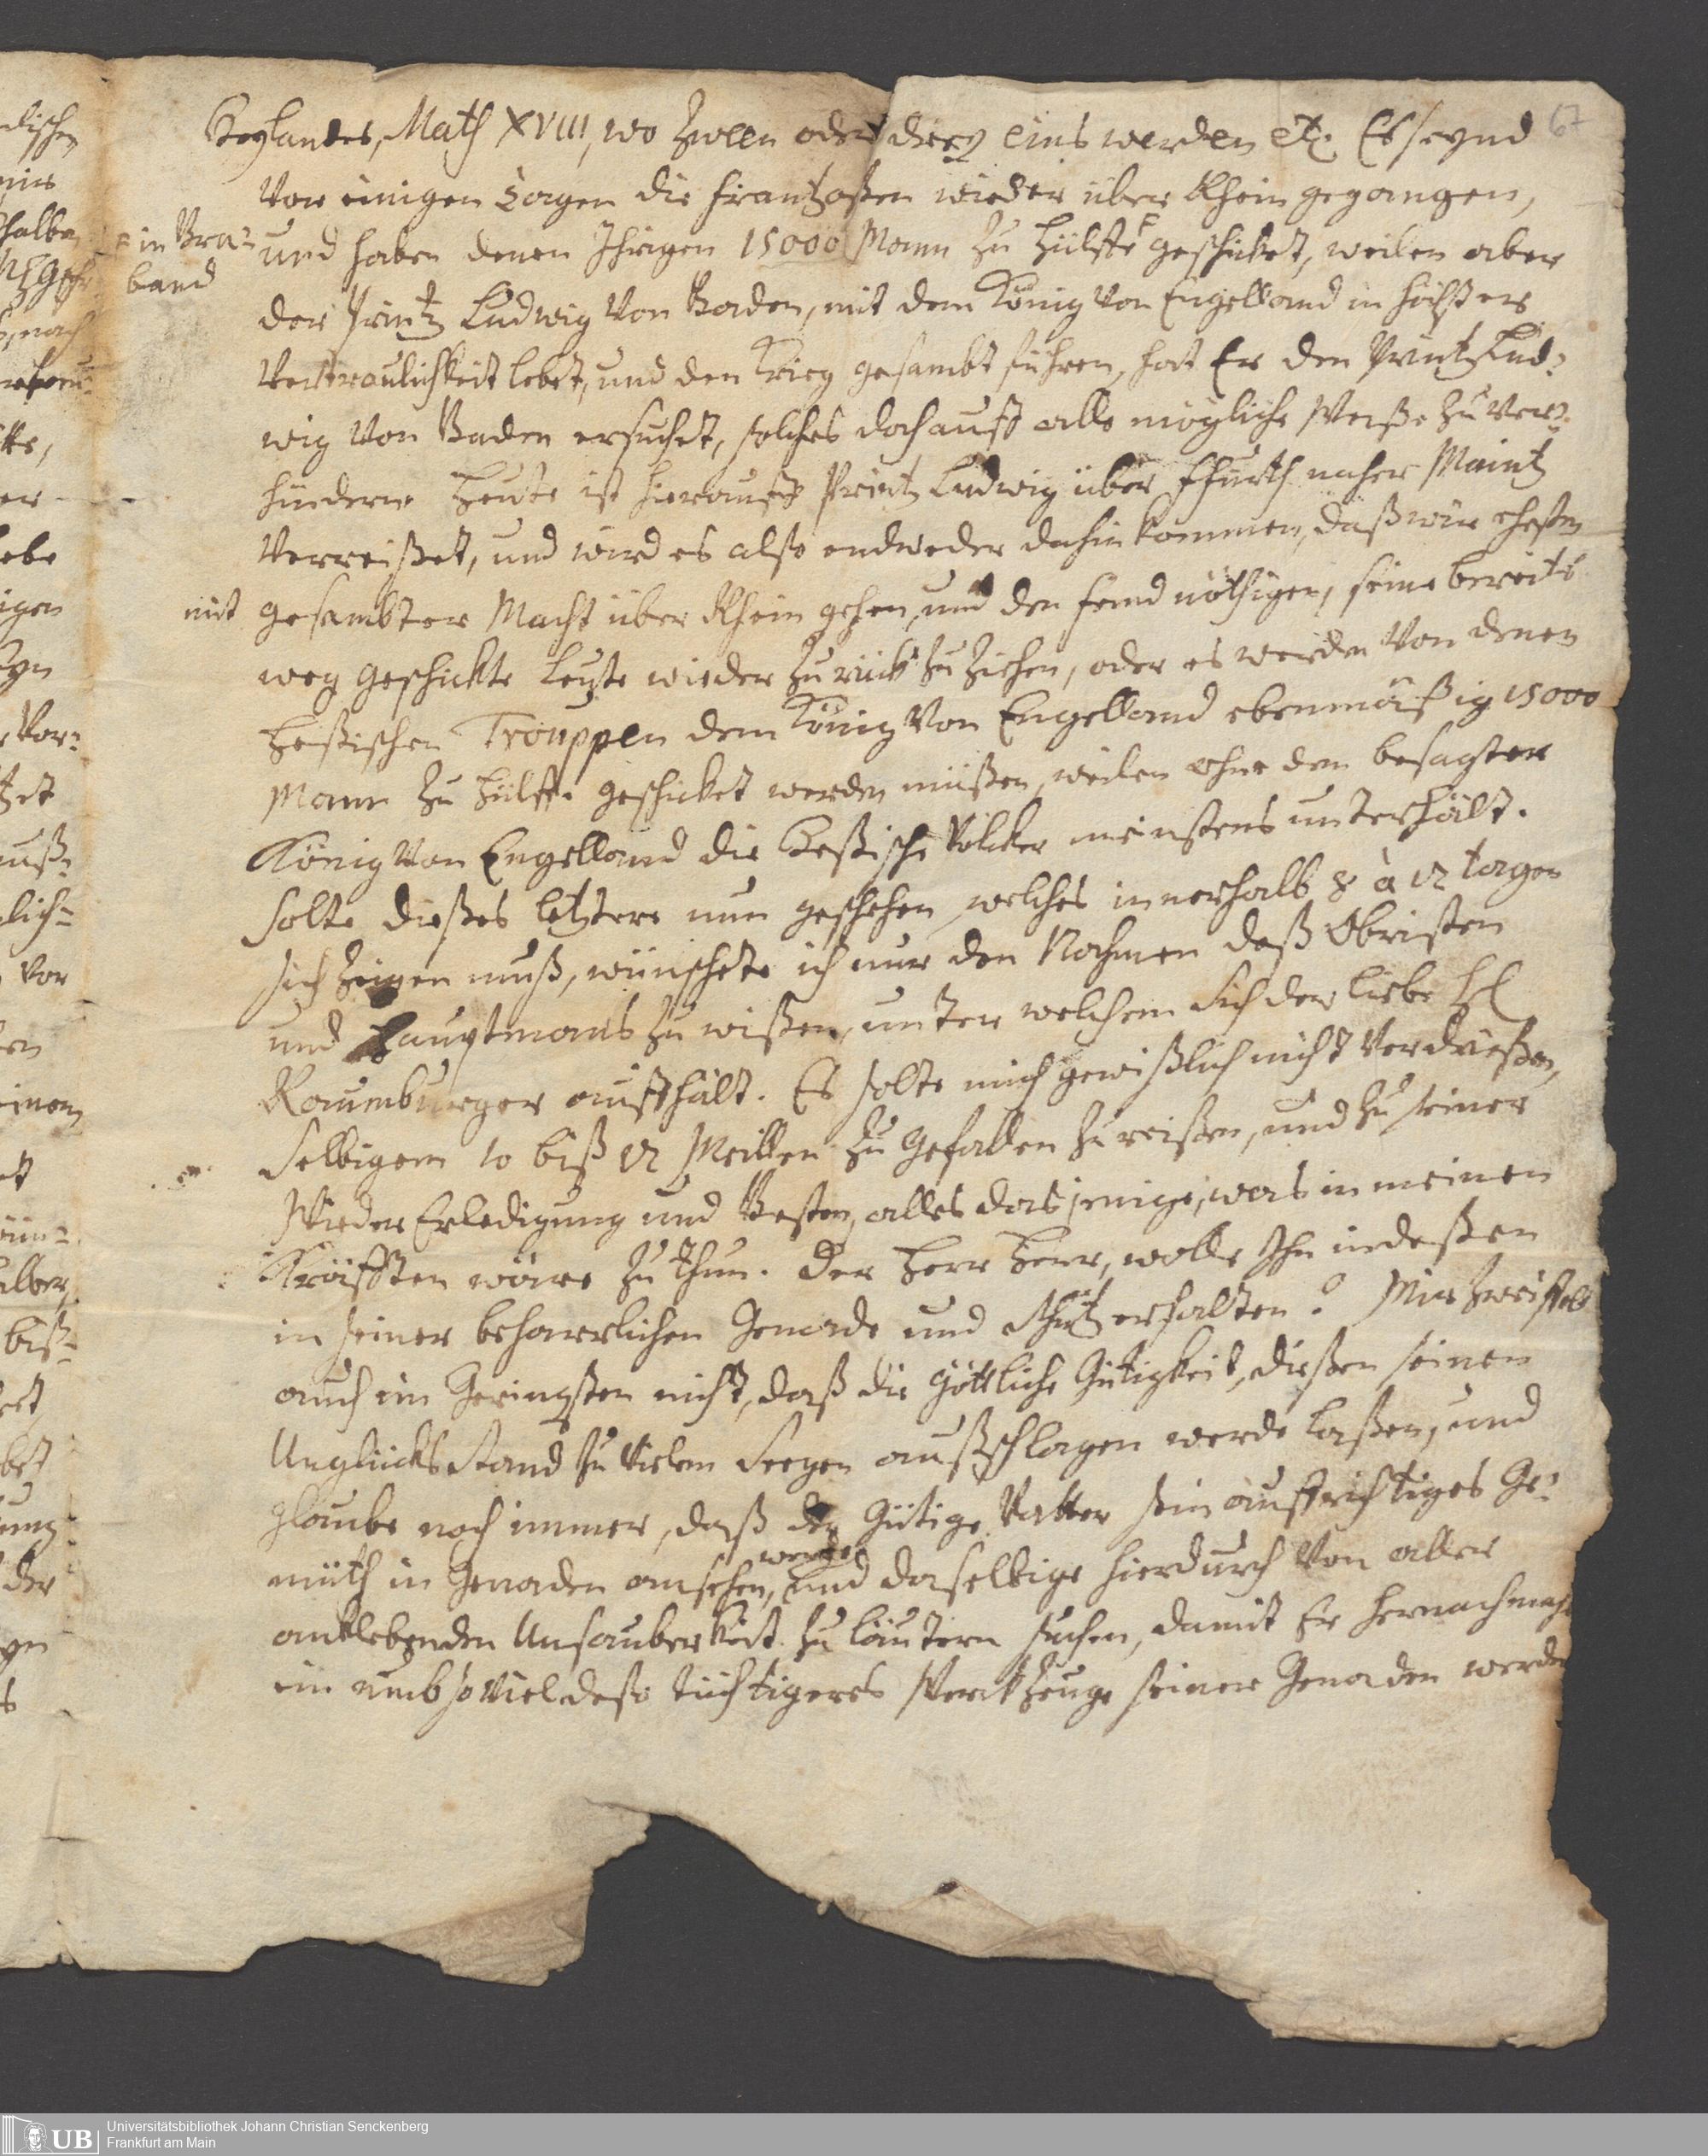 67
Heylandes, Math XVIII, wo zween oder drey eins werden etc. Es seynd
vor einigen Tagen die Frantzoßen wieder über Rhein gegangen,
und haben denen Ihrigen 15000 Mann zu Hülffe F geschicket, weilen aber
F in Bra=
band
der Printz Ludwig von Baden, mit dem König von Engelland in höchster
Vertraulichkeit lebet, und den Krieg gesambt führen, hat Er den Printz Lud=
wig von Baden ersuchet, solches doch auff alle mögliche Weiße zu ver=
hindern. Heute ist hierauff Printz Ludwig über Ffurth naher Maintz
verreißet, und wird es also endweder dahin kommen, daß wir ehestens
mit gesambter Macht über Rhein gehen, und den Feind nöthigen, seine bereits
weg geschickte Leuthe wieder zurück zu ziehen, oder es werden von denen
Heßischen Trouppen dem König von Engelland ebenmäßig 15000
Mann zu Hülffe geschicket werden müßen, weilen ohne dem besagter
König von Engelland die Heßische Völcker meinstens unterhält.
Solte dießes letztere nun geschehen, welches innerhalb 8 à 12 tagen
sich zeigen muß, wünschete ich nur den Nahmen deß Obristen
und Hauptmans zu wißen, unter welchem sich der liebe H
Kaumburger auffhält. Es solte mich gewißlich nicht verdrießen,
Selbigem 10 biß 12 Meillen zu gefallen zu reißen, und zu seiner
Wieder Erledigung und Besten, alles das jenige, was in meinen
Kräfften wäre zu thun. Der Herr Herr, wolle Ihn indeßen
in seiner beharrlichen Genade und Schutz erhalten! Mir zweiffelt
auch im Geringsten nicht, daß die Göttliche Gütigkeit, dießen seinen
Unglücks stand zu vielem Seegen außschlagen werde laßen, und
glaube noch immer, daß der Gütige Vatter sein auffrichtiges Ge=
müth in Genaden ansehen, werde und daselbige hierdurch von aller
anklebenden Unsauberkeit zu läutern suchen, damit Er hernachmahls
ein umb so viel deßo tüchtigeres Werckzeuge seiner Genaden werde
UB
Universitätsbibliothek Johann Christian Senckenberg
Frankfurt am Main